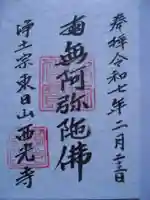 奉拝令和七年二月二三日
南無阿弥陀佛
浄土宗東日山西光寺